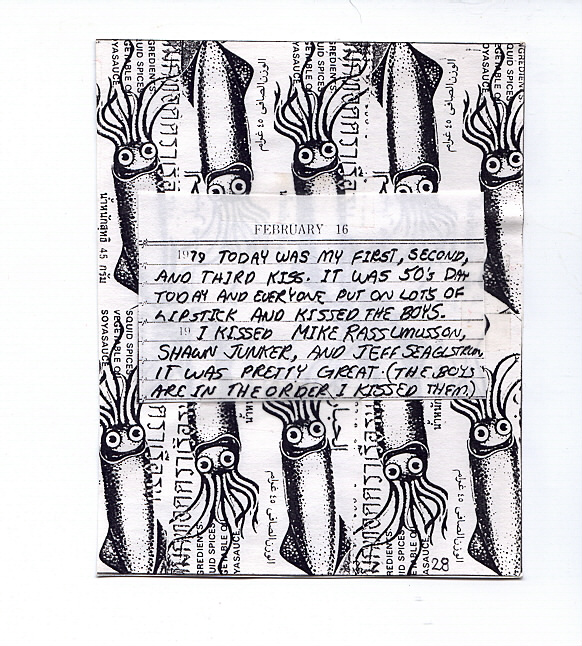 GREDIENTS
GETABLE O
UID SPICES
YASAUCE
الوزن الصافي ٤٥ غرام
น้ำหนักสุทธิ 45 กรัม
FEBRUARY 16
1979 TODAY WAS MY FIRST, SECOND,
AND THIRD KISS. IT WAS 50's DAY
TODAY AND EVERYONE PUT ON LOTS OF
LIPSTICK AND KISSED THE BOYS.
19 I KISSED MIKE RASSUMUSSON,
SHAWN JUNKER, AND JEFF SEAGLSTRUM,
IT WAS PRETTY GREAT. (THE BOYS
ARE IN THE ORDER I KISSED THEM)
SQUID SPICES
VEGETABLE O
SOYASAUCE
الوزن الصافي ٤٥ غرام
GREDIENTS
UID SPICES
GETABLE O
YASAUCE
28